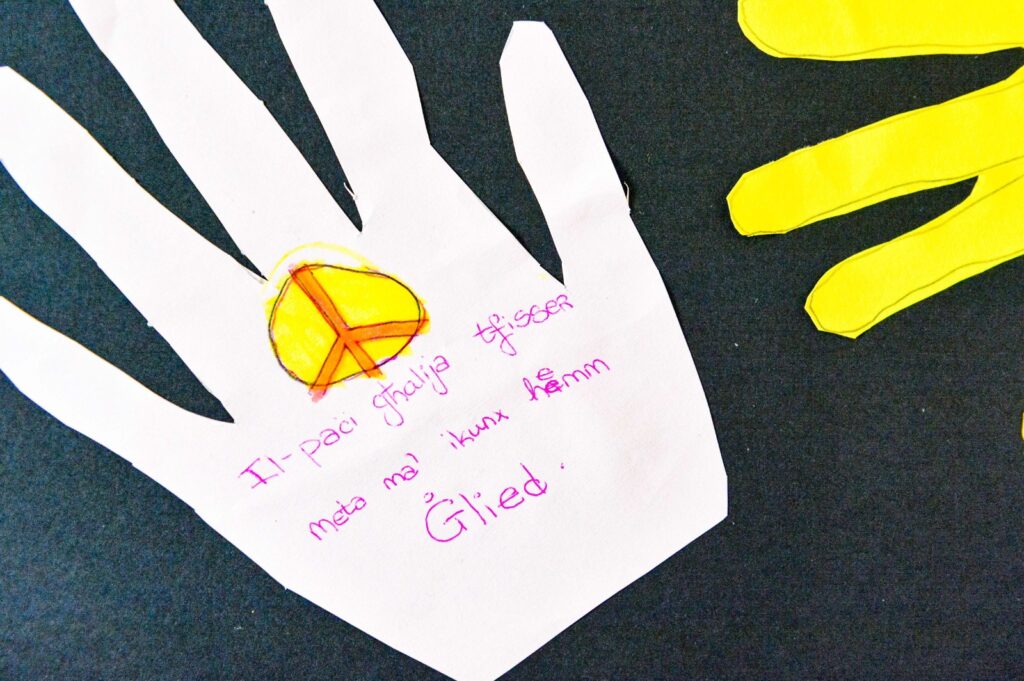 Il-paċi għalija tfisser
meta ma' ikunx hemm
Ġlied.